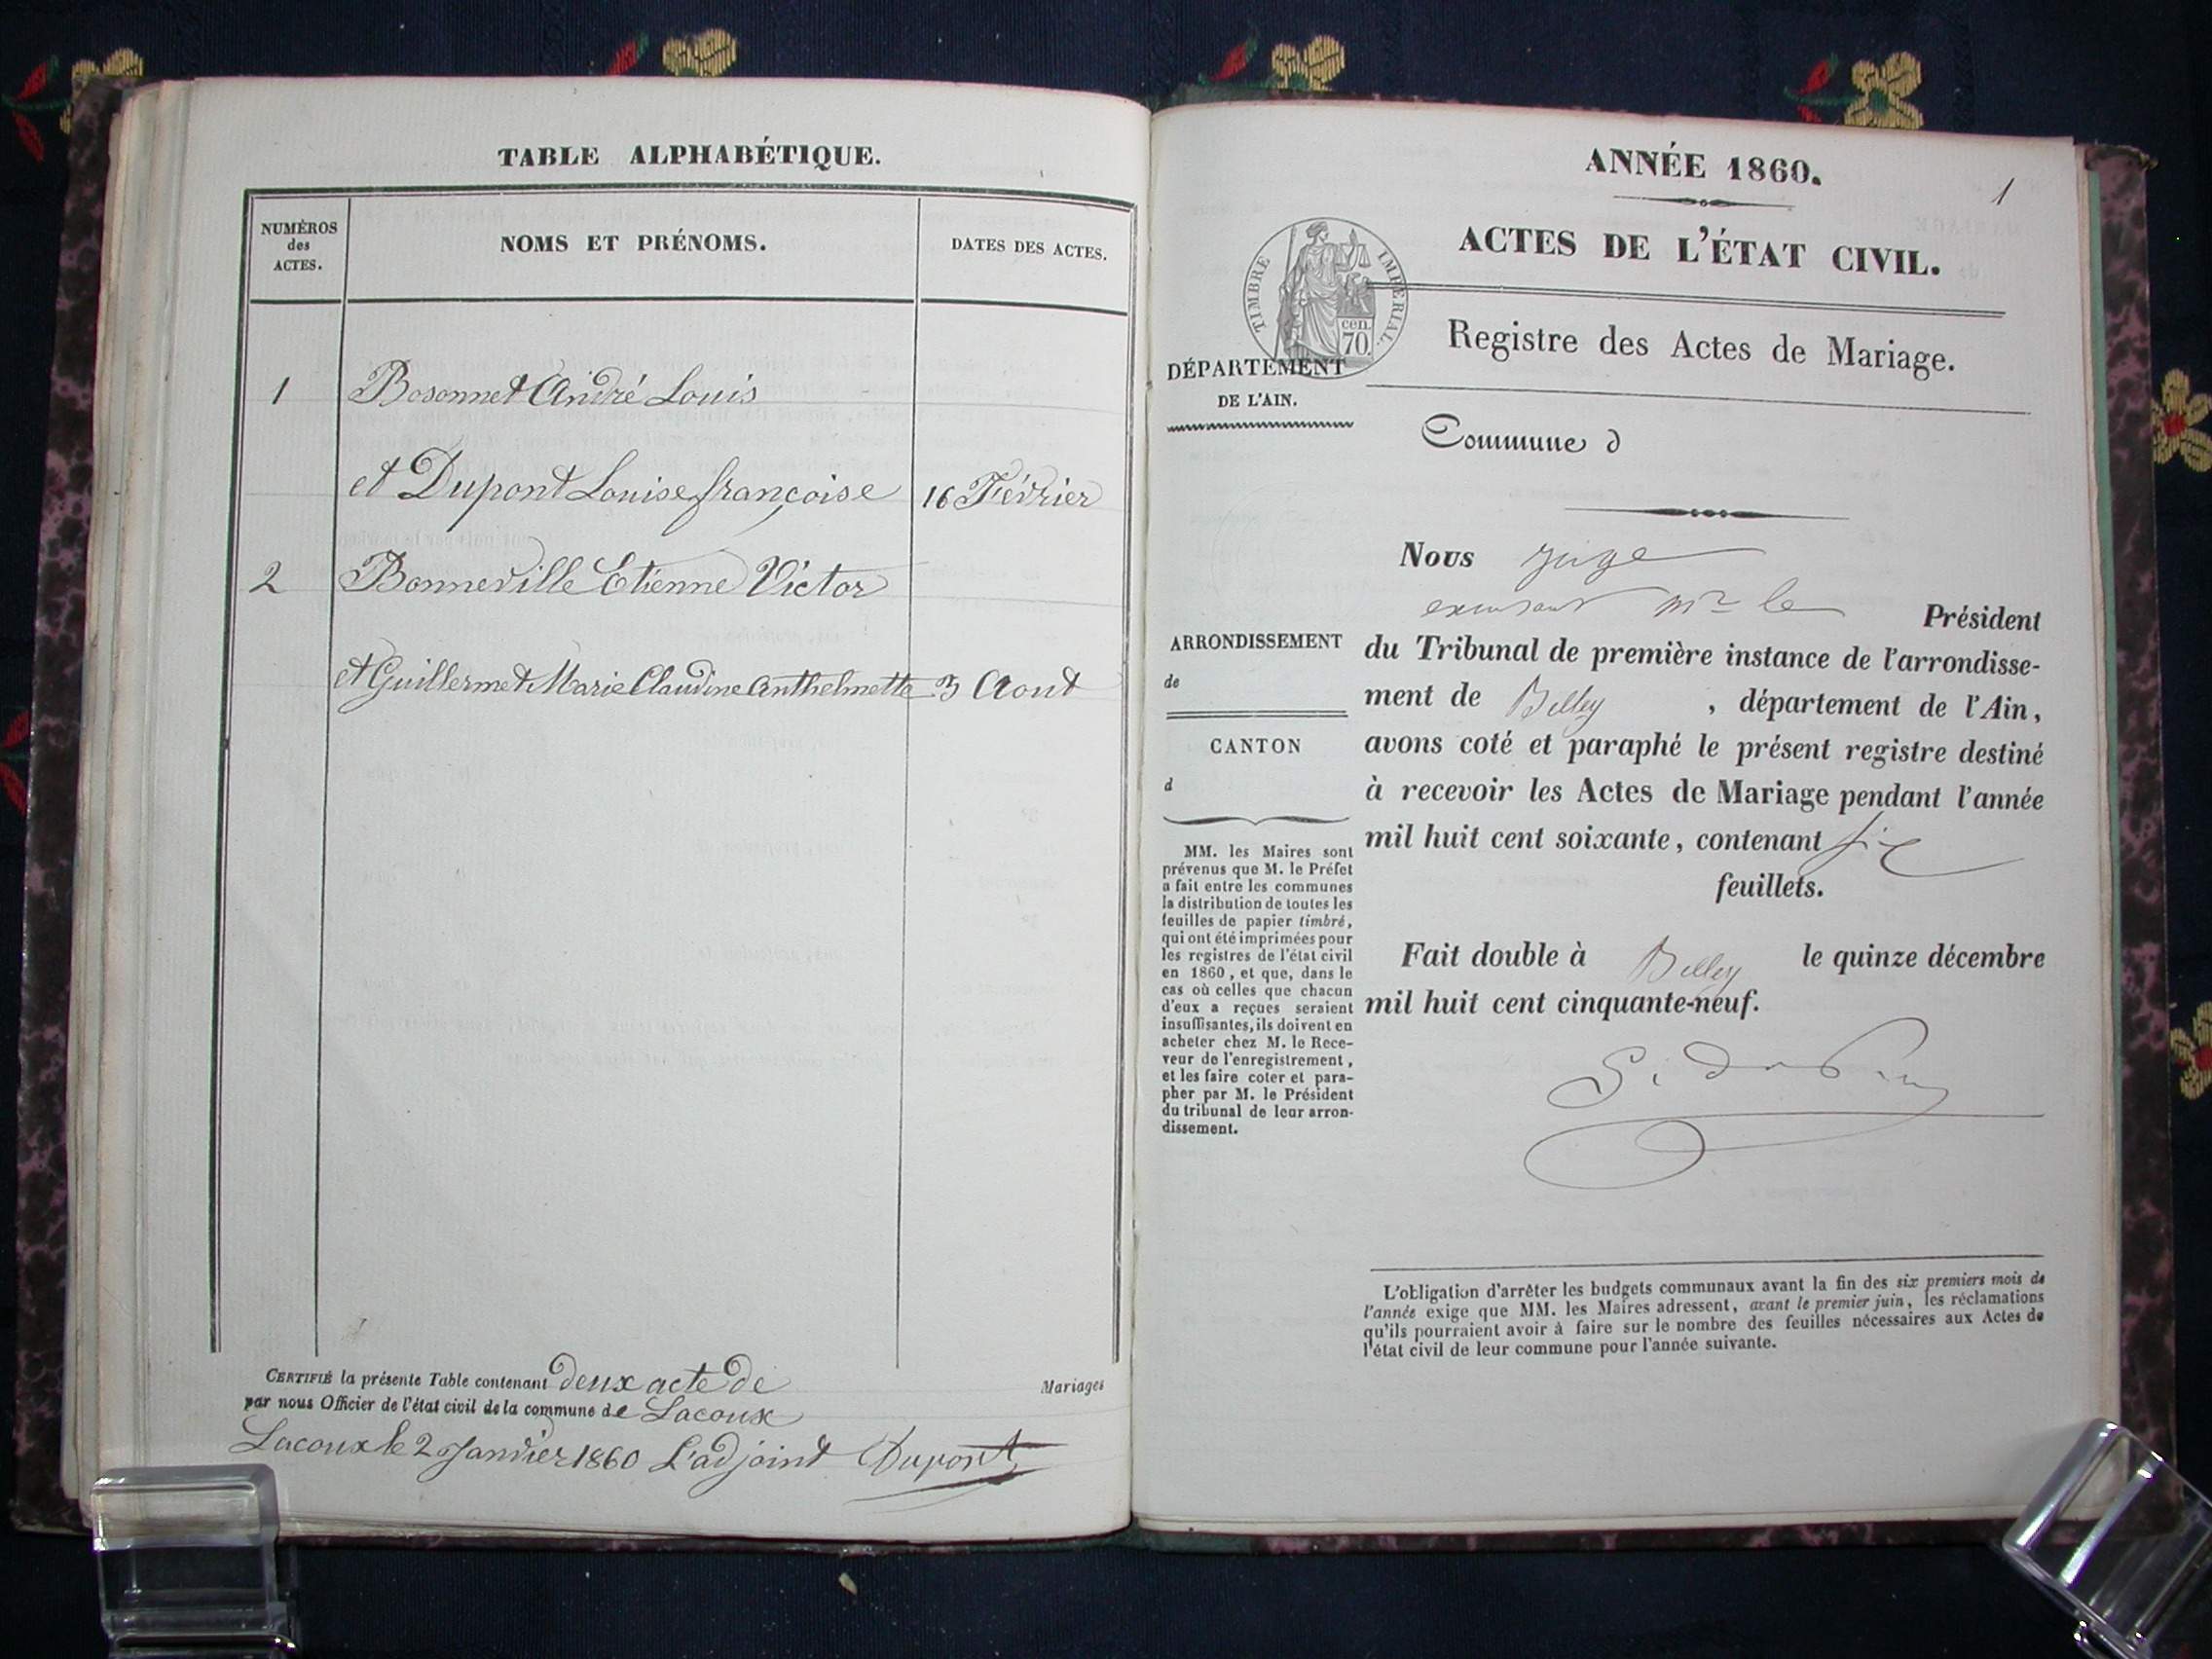 TABLE ALPHABÉTIQUE.
NUMÉROS
des
ACTES.
NOMS ET PRÉNOMS.
DATES DES ACTES.
1 Bosonnet André Louis
et Dupont Louise françoise 16 Février
2 Bonneville Etienne Victor
et Guillermet Marie Claudine Anthelmette 3 Aout
CERTIFIÉ la présente Table contenant deux acte de Mariages
par nous Officier de l'état civil de la commune de Lacoux
Lacoux le 2 Janvier 1860 L'adjoint Dupont
ANNÉE 1860.
1
ACTES DE L'ÉTAT CIVIL.
TIMBRE IMPÉRIAL.
cen.
70.
Registre des Actes de Mariage.
DÉPARTEMENT
DE L'AIN.
Commune d
ARRONDISSEMENT
de
CANTON
d
MM. les Maires sont
prévenus que M. le Préfet
a fait entre les communes
la distribution de toutes les
feuilles de papier timbré,
qui ont été imprimées pour
les registres de l'état civil
en 1860, et que, dans le
cas où celles que chacun
d'eux a reçues seraient
insuffisantes, ils doivent en
acheter chez M. le Rece-
veur de l'enregistrement,
et les faire coter et para-
pher par M. le Président
du tribunal de leur arron-
dissement.
Nous juge
mr le Président
du Tribunal de première instance de l'arrondisse-
ment de Belley, département de l'Ain,
avons coté et paraphé le présent registre destiné
à recevoir les Actes de Mariage pendant l'année
mil huit cent soixante, contenant six
feuillets.
Fait double à Belley le quinze décembre
mil huit cent cinquante-neuf.
L'obligation d'arrêter les budgets communaux avant la fin des six premiers mois de
l'année exige que MM. les Maires adressent, avant le premier juin, les réclamations
qu'ils pourraient avoir à faire sur le nombre des feuilles nécessaires aux Actes de
l'état civil de leur commune pour l'année suivante.